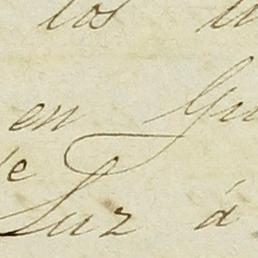 los
en Gu
de
Luz á